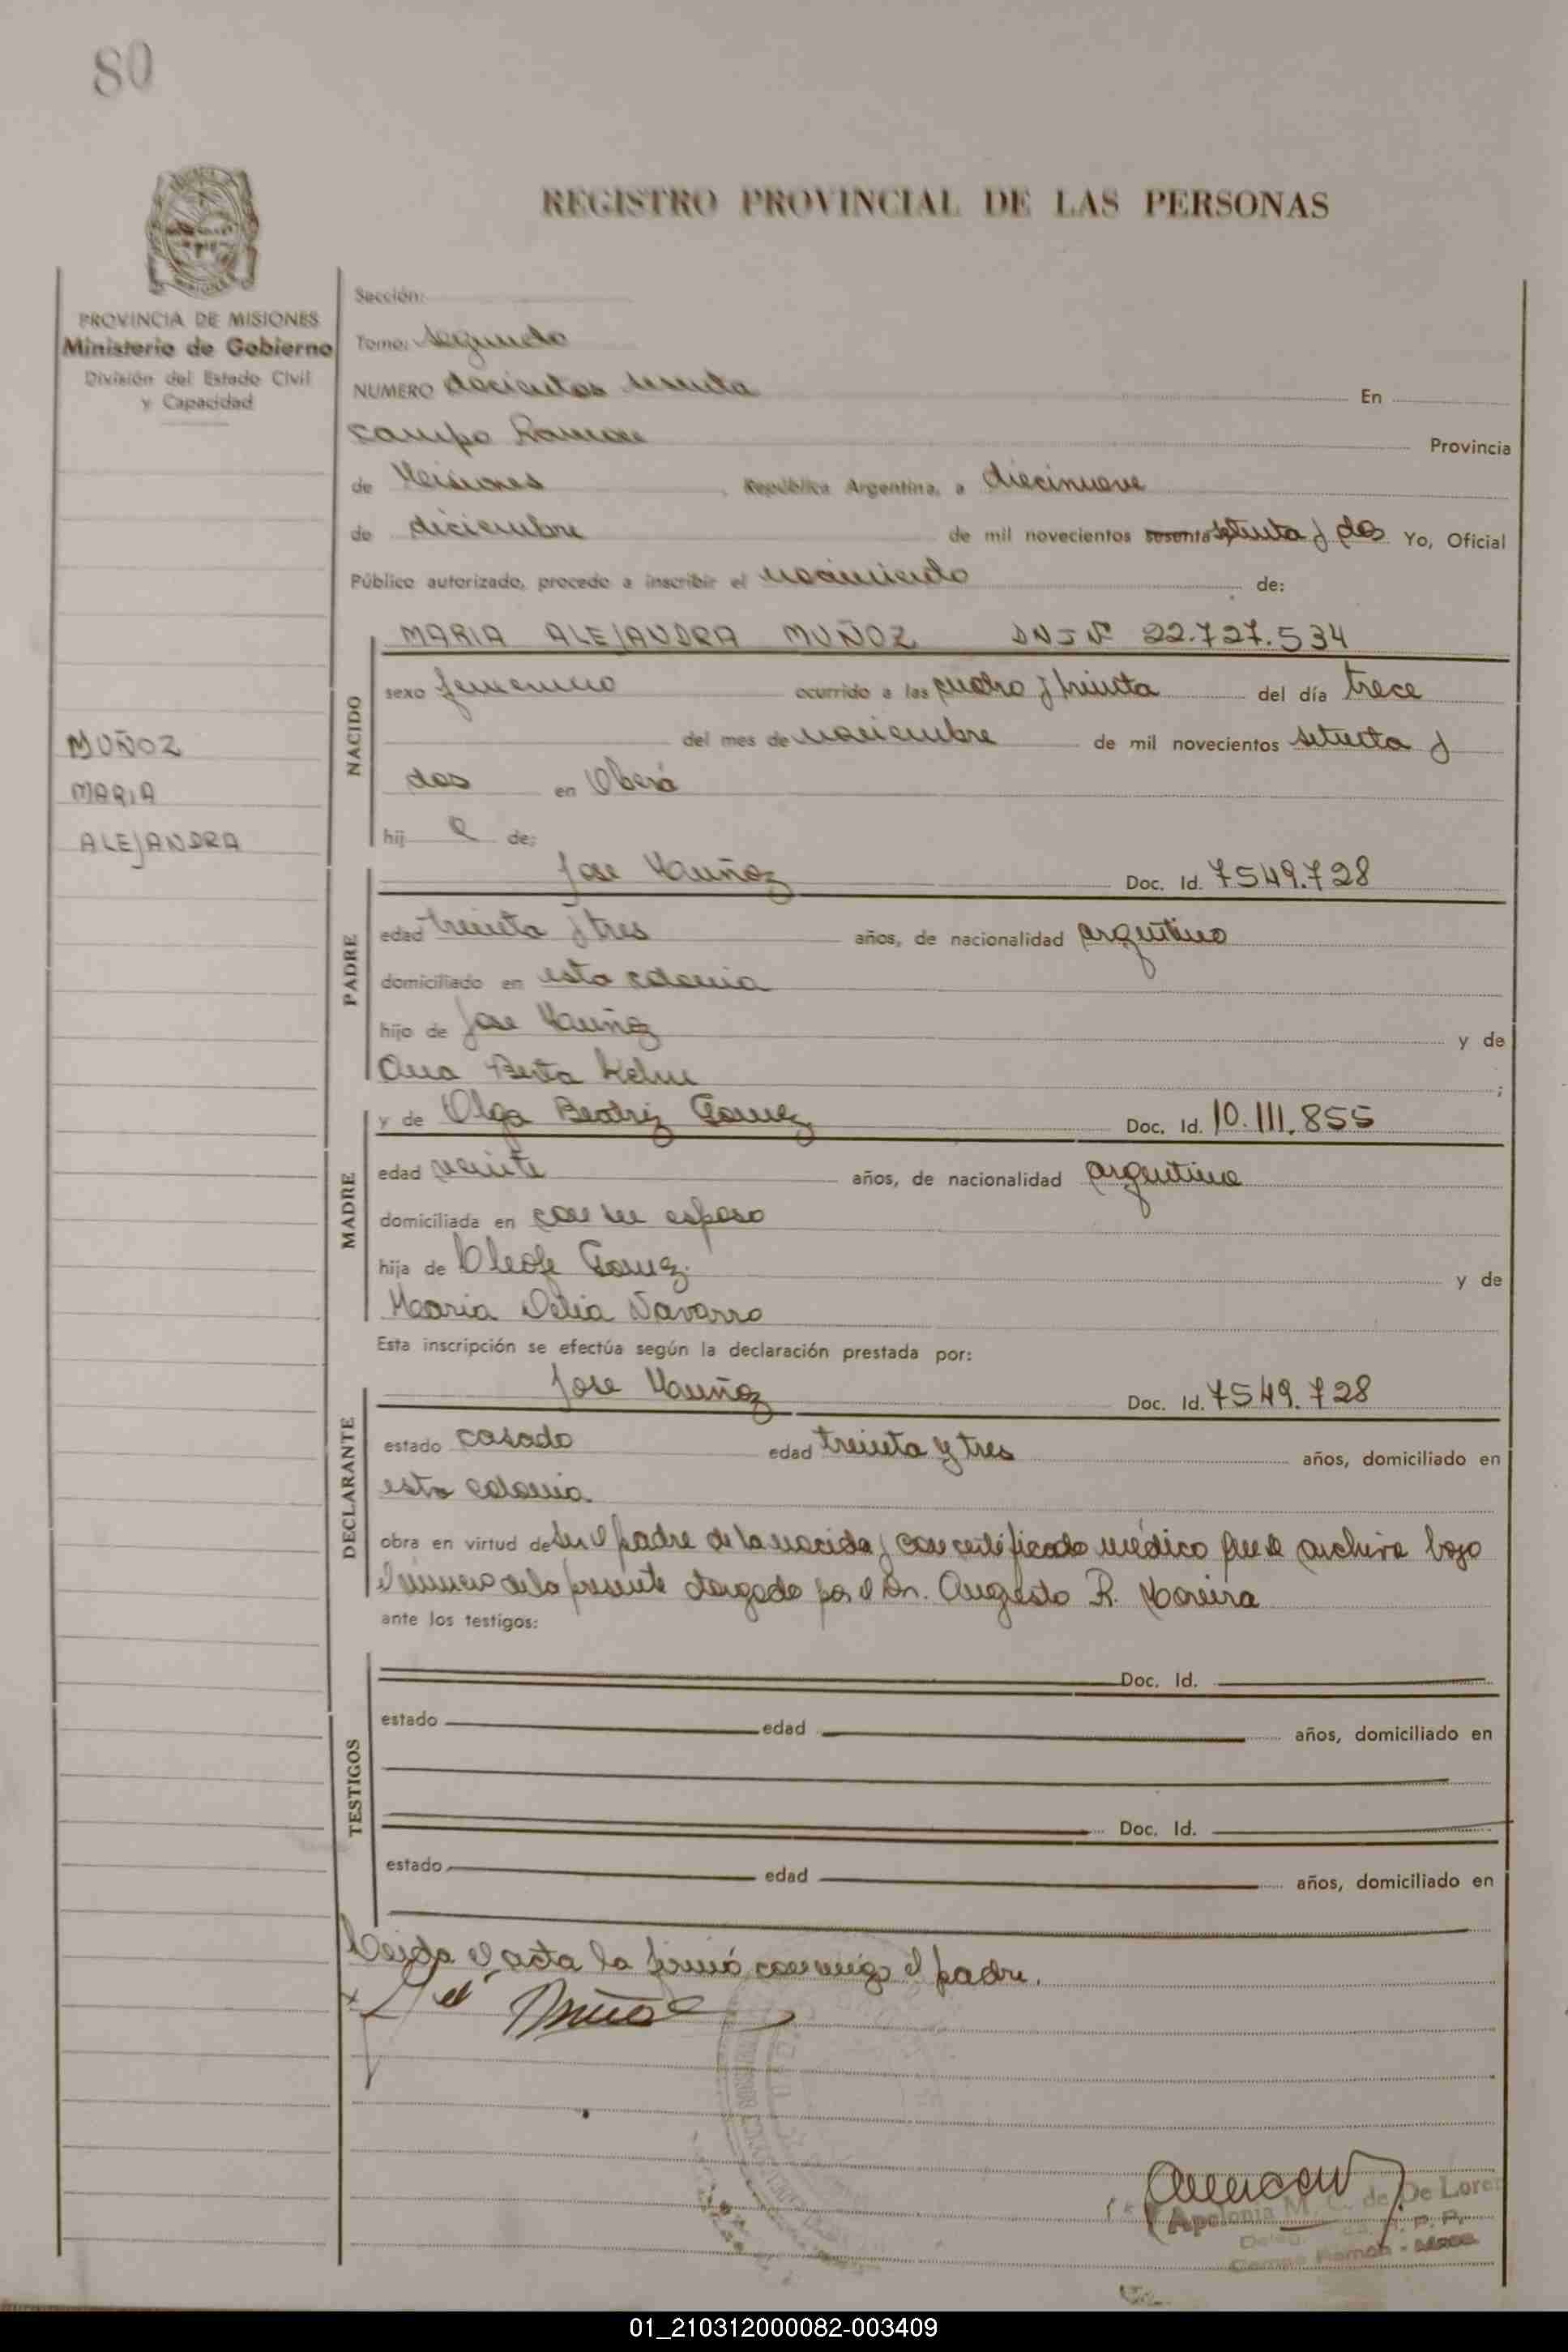 80
REGISTRO PROVINCIAL DE LAS PERSONAS
PROVINCIA DE MISIONES
Ministerio de Gobierno
División del Estado Civil
y Capacidad
MUÑOZ
MARIA
ALEJANDRA
Sección:
Tomo: Segundo
NUMERO docientos sesenta En
Campo Ramon Provincia
de Misiones, República Argentina, a diecinueve
de diciembre de mil novecientos sesenta setenta y dos Yo, Oficial
Público autorizado, procedo a inscribir el nacimiento de:
NACIDO
MARIA ALEJANDRA MUÑOZ DNI Nº 22.727.534
sexo femenino ocurrido a las cuatro y treinta del día trece
del mes de noviembre de mil novecientos setenta y
dos en Oberá
hij a de:
PADRE
Jose Muñoz Doc. Id. 7549.728
edad treinta y tres años, de nacionalidad argentino
domiciliado en esta colonia
hijo de Jose Muñoz y de
Ana Berta Kelm ;
MADRE
y de Olga Beatriz Gomez Doc. Id. 10.111.855
edad veinte años, de nacionalidad argentina
domiciliada en con su esposo
hija de Oleofe Gomez. y de
Maria Delia Navarro
Esta inscripción se efectúa según la declaración prestada por:
DECLARANTE
Jose Muñoz Doc. Id. 7549.728
estado casado edad treinta y tres años, domiciliado en
esta colonia.
obra en virtud de ser el padre de la nacida y con certificado médico que se archiva bajo
el número de la presente otorgado por el Dr. Augusto R. Moreira
ante los testigos:
TESTIGOS
Doc. Id.
estado edad años, domiciliado en
Doc. Id.
estado edad años, domiciliado en
Leida el acta la firmó conmigo el padre.
Muñoz
Apolonia M. C. de De Lore
R. P. P.
Campo Ramon - Mnes
01_210312000082-003409